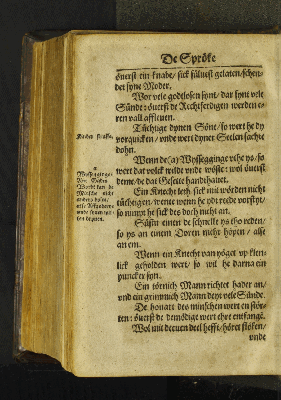 De Spröke
överst ein knabe/ sick sülvest gelaten/ schen-
det syne Moder.
Wor vele godtlosen synt/ dar synt vele
Sünde: överst de Rechtferdigen werden e-
ren vall affleuen.
Tüchtige dynen Söne/ so wert he dy
vorquicken/ unde wert dyner Seelen sachte
dohn.
Wenn de (a) Wyssegginge uthe ys/ so
wert dat volck wilde und wöste: wol överst
deme/ de dat Gesette handthavet.
Ein Knecht leth sick mit wörden nicht
tüchtigen/ wente wenn he ydt rede vorsteyt/
so nimpt he sick des doch nicht an.
Sühstu einen de schnelle ys tho reden/
so ys an einem Doren mehr höpen/ alse
an em.
Wenn ein Knecht van yöget up klen-
lick geholden wert/ so wil he darna ein
Juncker syn.
Ein törnich Mann richtet hader an/
und ein grimmich Mann deyt vele Sünde.
De homöt des minschen wert en stör-
ten: överst de demödige wert ehre entfangē.
Wol mit deeven deel hefft/ höret flöken/
unde